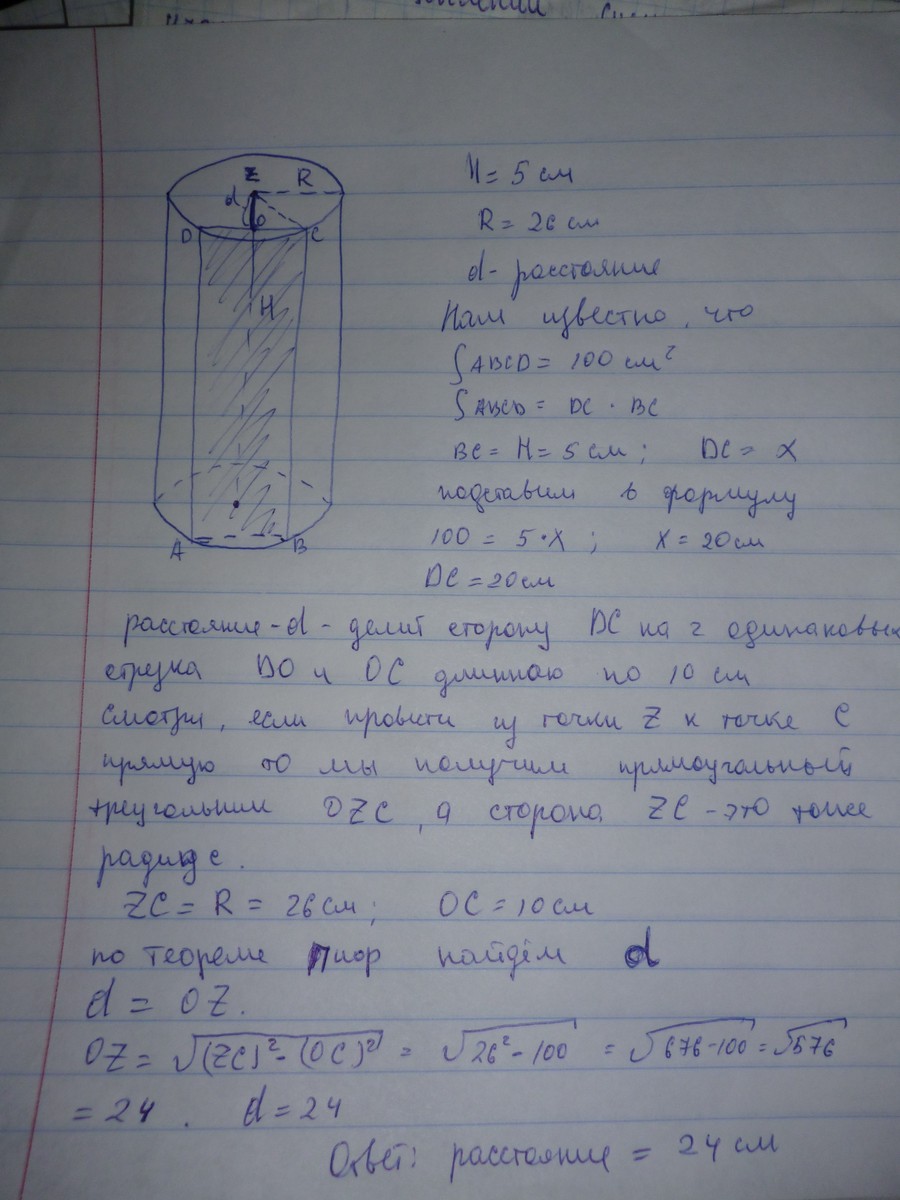 Z
R
d
O
D
C
H
A
B
H = 5 см
R = 26 см
d - расстояние
Нам известно, что
SABCD = 100 см²
SABCD = DC · BC
BC = H = 5 см ; DC = x
подставим в формулу
100 = 5·x ; x = 20 см
DC = 20 см
расстояние - d - делит сторону DC на 2 одинаковых
отрезка DO и OC длинною по 10 см
Смотри, если провести из точки Z к точке C
прямую то мы получим прямоугольный
треугольник OZC, а сторона ZC - это тоже
радиус.
ZC = R = 26 см ; OC = 10 см
по теореме Пиор найдём d
d = OZ.
OZ = √(ZC)² - (OC)² = √26² - 100 = √676 - 100 = √576
= 24 . d = 24
Ответ: расстояние = 24 см